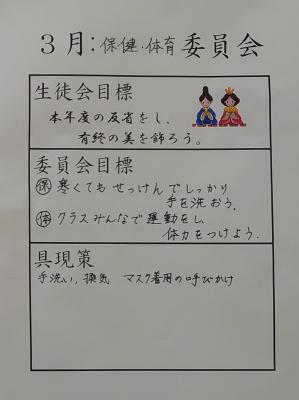 3月:保健・体育委員会
生徒会目標
本年度の反省をし、
有終の美を飾ろう。
委員会目標
保 寒くてもせっけんでしっかり
手を洗おう。
体 クラスみんなで運動をし
体力をつけよう。
具現策
手洗い,換気 マスク着用の呼びかけ